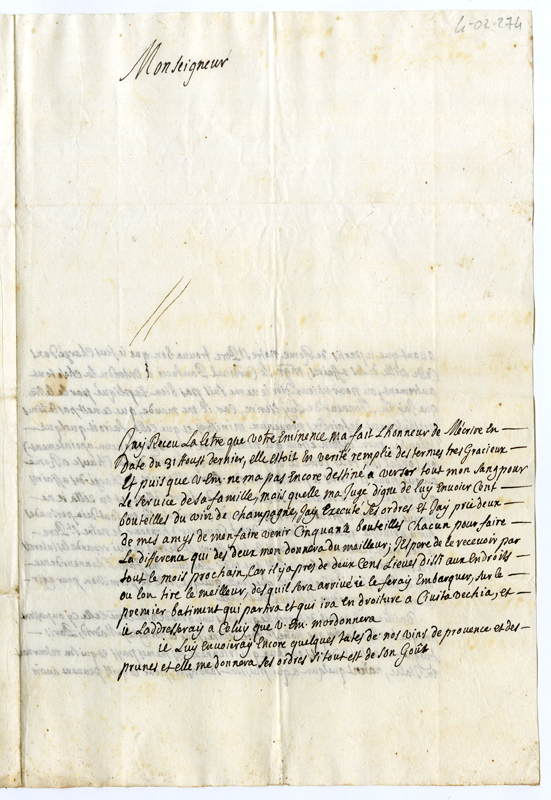 4-02-274
Monseigneur
J'ay Receu La Letre que votre Eminence ma fait L'honneur de M'ecrire En
Date du 31 Aoust dernier, elle estoit En verité remplie des termes tres Gracieux
Et puis que V. Em. ne ma pas Encore destiné a verser tout mon Sang pour
Le Service de Sa famille, mais quelle ma Juge digne de luy Envoier Cent
bouteilles du vin de Champagne, Jay Execute Ses ordres et Jay prié deux
de mes amys de men faire venir Cinquante bouteilles Chacun pour faire
La difference qui des deux mon donnera du meilleur; J'espere de le recevoir par
tout le mois prochain, Car il ja pres de deux Cens Lieues d'issi aux Endroits
ou lon tire le meilleur, des quil Sera arrivé ie le feray Embarquer, Sur le
premier batiment qui partira et qui ira en droiture a Civita Vechia, et
ie Laddresseray a Celuy que V. Em. mordonnera
ie Luy Envoieray Encore quelques tates de nos vins de provence et des
prunes et elle me donnera Ses ordres Si tout est de Son Goût